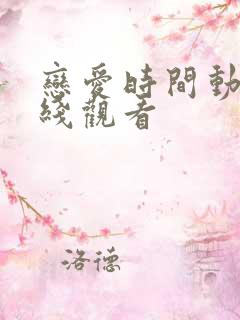 戀愛時間動
綫觀看
洛德